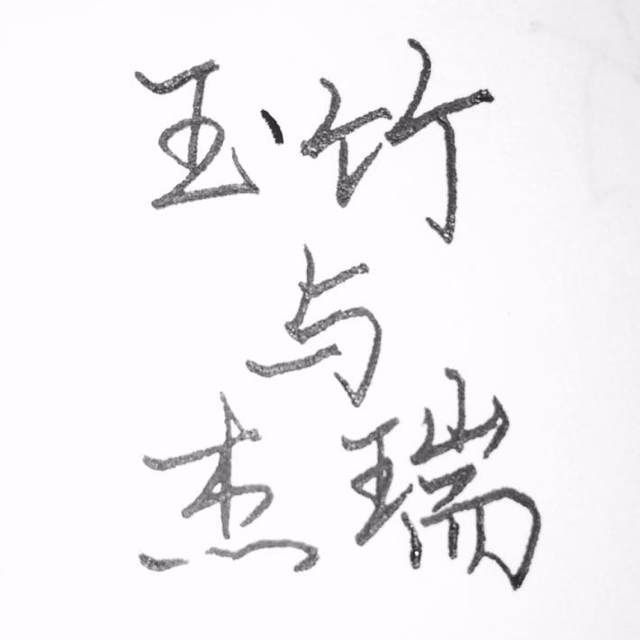 玉竹
与
杰瑞